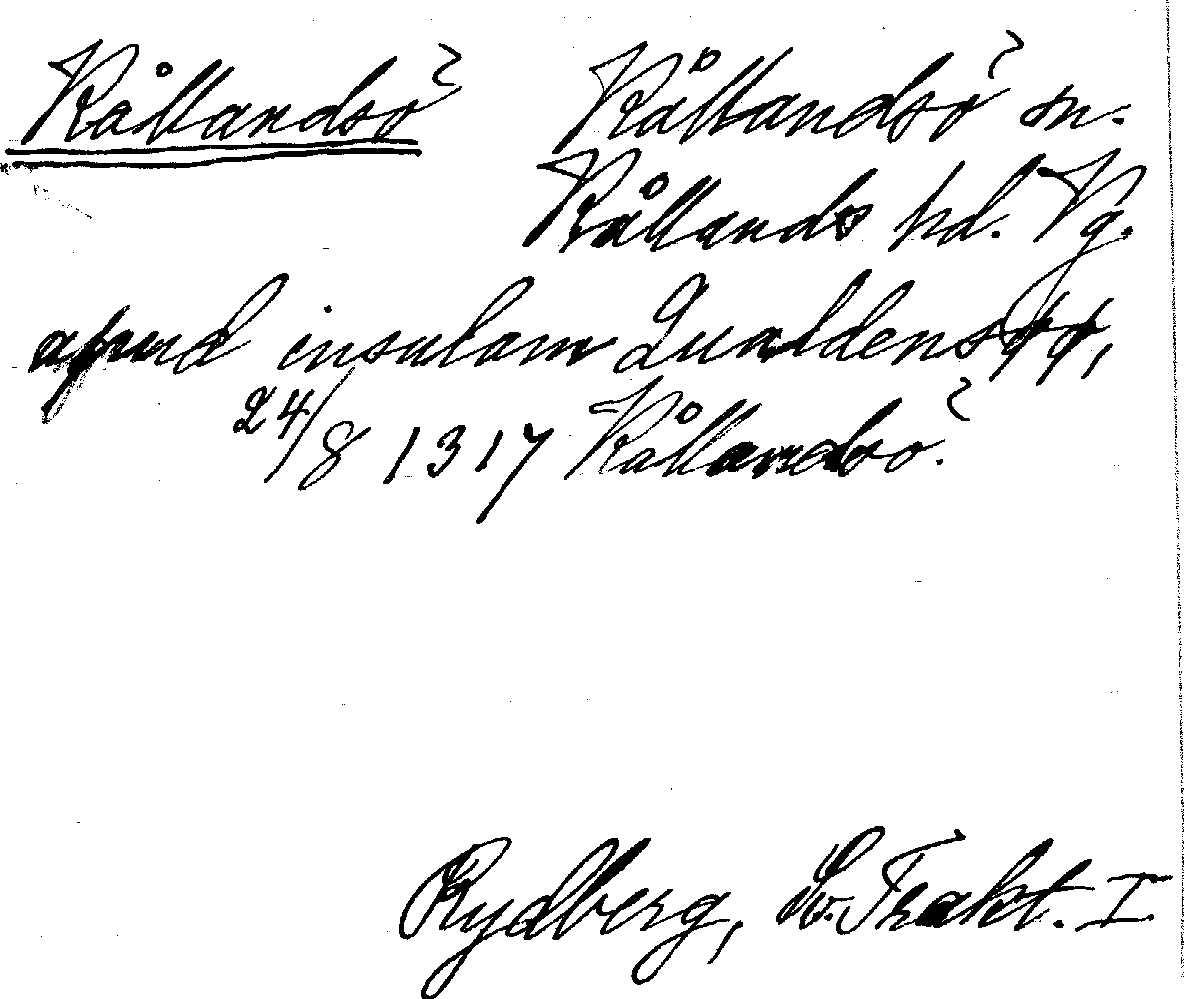 Kållandsö Kållandsö sn.
Kållands hd. Vg.
apud insulam Qualdensøø,
24/8 1317 Kållandsö.
Rydberg, Sv. Trakt. I